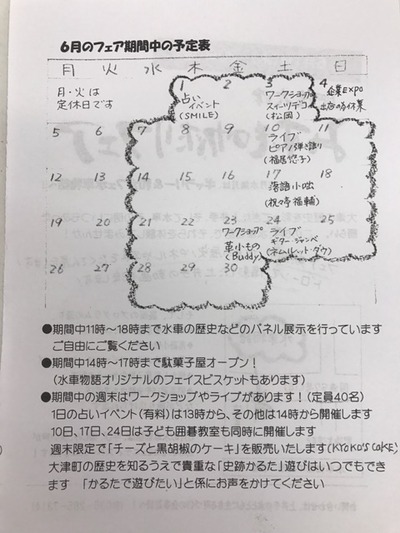 6月のフェア期間中の予定表
月 火 水 木 金 土 日
月・火は
定休日です
1 2 3 4
占い
イベント
(SMILE)
ワークショップ
スイーツデコ
(松岡)
企業EXPO
出店の為休業
5 6 7 8 9 10 11
ライブ
ピアノ弾き語り
(福居悠子)
12 13 14 15 16 17 18
落語小咄
19 20 21 22 23 24 25
ワークショップ
革小もの
(Buddy)
ライブ
ギター・ジャンベ
26 27 28 29 30
●期間中11時～18時まで水車の歴史などのパネル展示を行っています
ご自由にご覧ください
●期間中14時～17時まで駄菓子屋オープン！
(水車物語オリジナルのフェイスビスケットもあります)
●期間中の週末はワークショップやライブがあります！(定員40名)
1日の占いイベント(有料)は13時から、その他は14時から開催します
10日、17日、24日は子ども囲碁教室も同時に開催します
週末限定で「チーズと黒胡椒のケーキ」を販売いたします(KYOKO'S CAKE)
大津町の歴史を知るうえで貴重な「史跡かるた」遊びはいつでもでき
ます 「かるたで遊びたい」と係にお声をかけてください